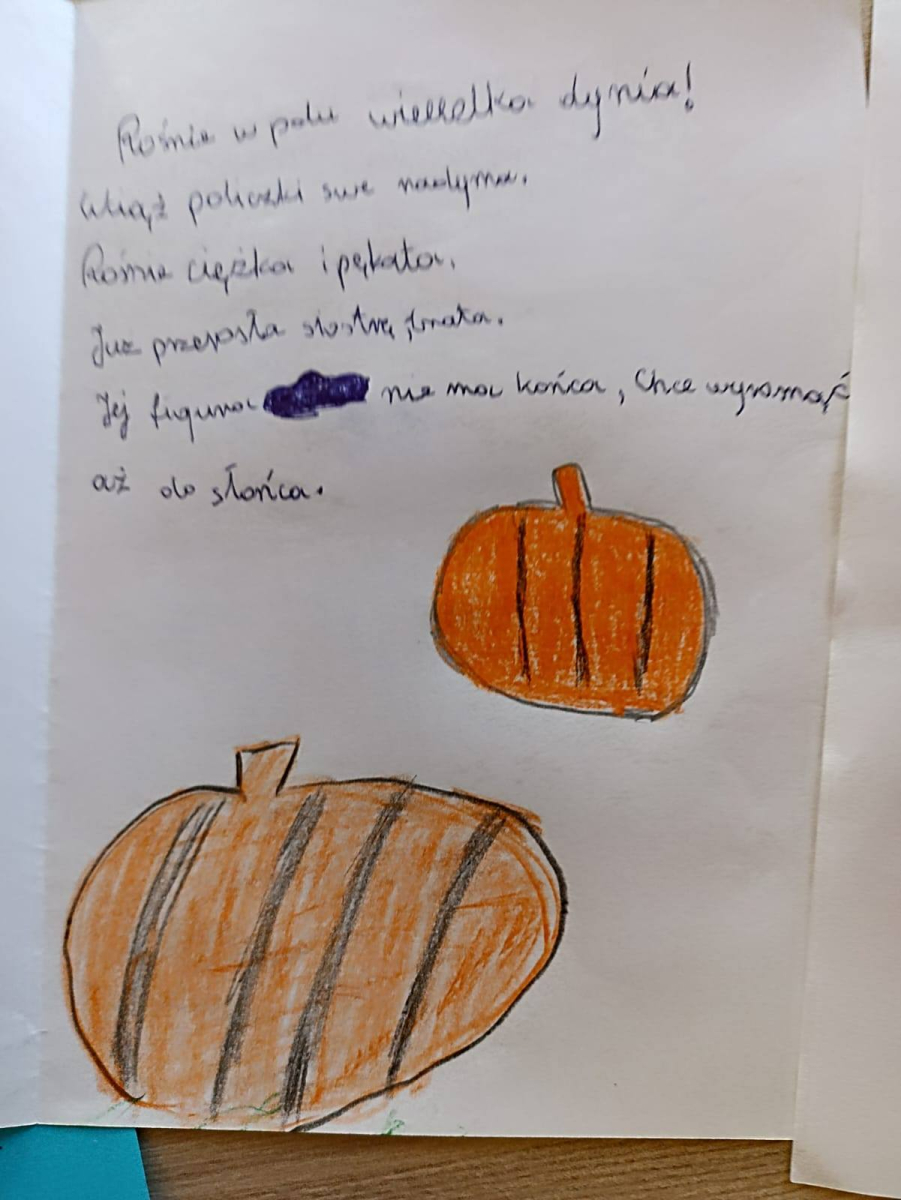 Rośnie w polu wieeelka dynia!
Wciąż policzki swe nadyma.
Rośnie ciężka i pękata.
Już przerosła siostrę, brata.
Jej figura nie ma końca, Chce wyrosnąć
aż do słońca.